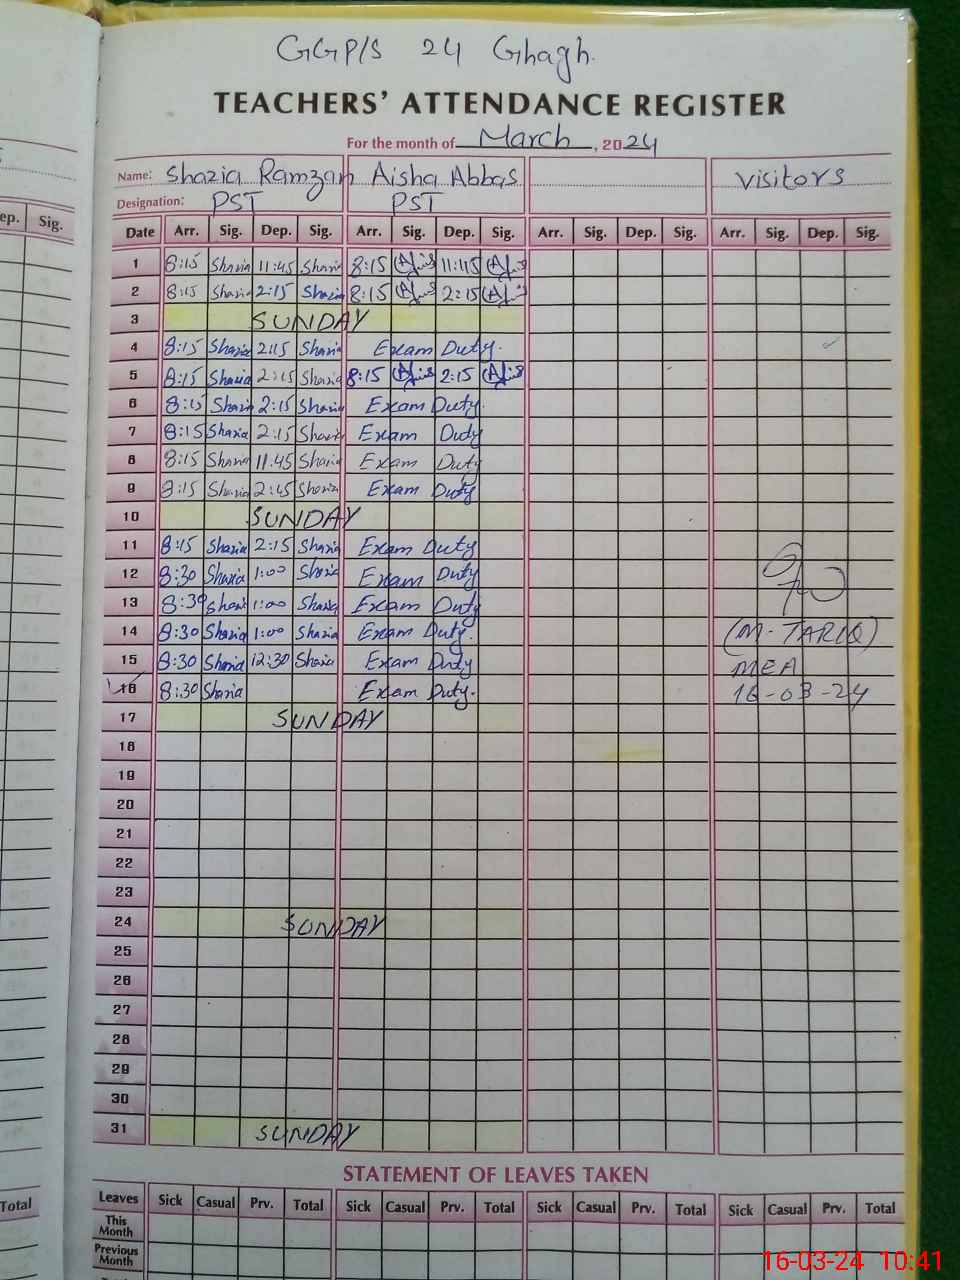 GGP/S 24 Ghagh.
TEACHERS' ATTENDANCE REGISTER
For the month of March, 2024
Name: Shazia Ramzan Aisha Abbas visitors
Designation: PST PST
ep. Sig. Date Arr. Sig. Dep. Sig. Arr. Sig. Dep. Sig. Arr. Sig. Dep. Sig. Arr. Sig. Dep. Sig.
1 8:15 Shazia 11:45 Shazia 8:15 11:45
2 8:15 Shazia 2:15 Shazia 8:15 2:15
3 SUNDAY
4 8:15 Shazia 2:15 Shazia Exam Duty.
5 8:15 Shazia 2:15 Shazia 8:15 2:15
6 8:15 Shazia 2:15 Shazia Exam Duty.
7 8:15 Shazia 2:15 Shazia Exam Duty
8 8:15 Shazia 11:45 Shazia Exam Duty
9 8:15 Shazia Shazia Exam Duty
10 SUNDAY
11 8:15 Shazia 2:15 Shazia Exam Duty
12 8:30 Shazia 1:00 Shazia Exam Duty
13 8:30 Shazia 1:00 Shazia Exam Duty
14 8:30 Shazia 1:00 Shazia Exam Duty. (M. TARIQ)
15 8:30 Shazia 12:30 Shazia Exam Duty MEA
16 8:30 Shazia Exam Duty. 16-03-24
17 SUNDAY
18
19
20
21
22
23
24 SUNDAY
25
26
27
28
29
30
31 SUNDAY
STATEMENT OF LEAVES TAKEN
Total Leaves Sick Casual Prv. Total Sick Casual Prv. Total Sick Casual Prv. Total Sick Casual Prv. Total
This Month
Previous Month
16-03-24 10:41